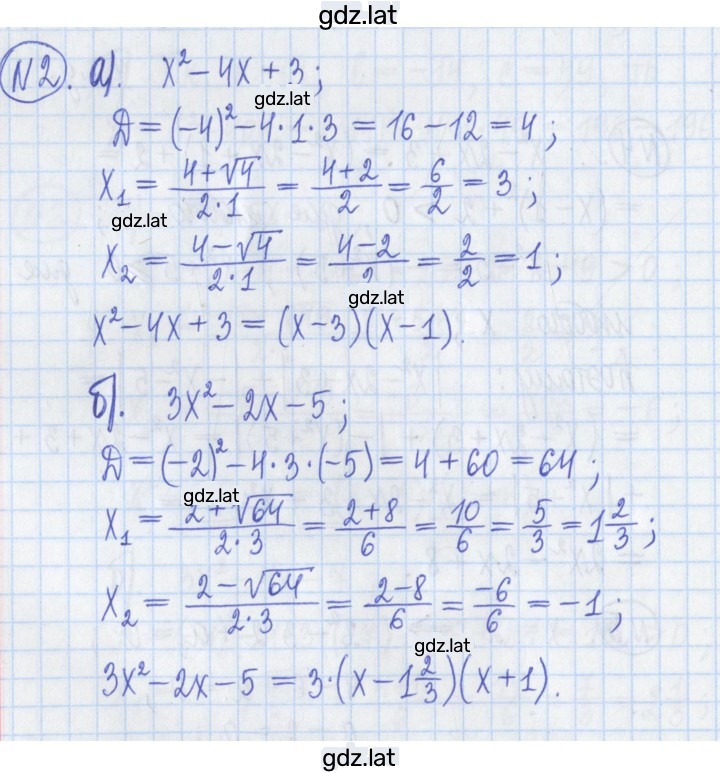 gdz.lat
N2. а). x² - 4x + 3;
gdz.lat
Д = (-4)² - 4·1·3 = 16 - 12 = 4;
x₁ = (4+√4)/(2·1) = (4+2)/2 = 6/2 = 3;
gdz.lat
x₂ = (4-√4)/(2·1) = (4-2)/2 = 2/2 = 1;
gdz.lat
x² - 4x + 3 = (x-3)(x-1).
б). 3x² - 2x - 5;
Д = (-2)² - 4·3·(-5) = 4 + 60 = 64;
gdz.lat
x₁ = (2+√64)/(2·3) = (2+8)/6 = 10/6 = 5/3 = 1 2/3;
x₂ = (2-√64)/(2·3) = (2-8)/6 = -6/6 = -1;
gdz.lat
3x² - 2x - 5 = 3·(x - 1 2/3)(x+1).
gdz.lat